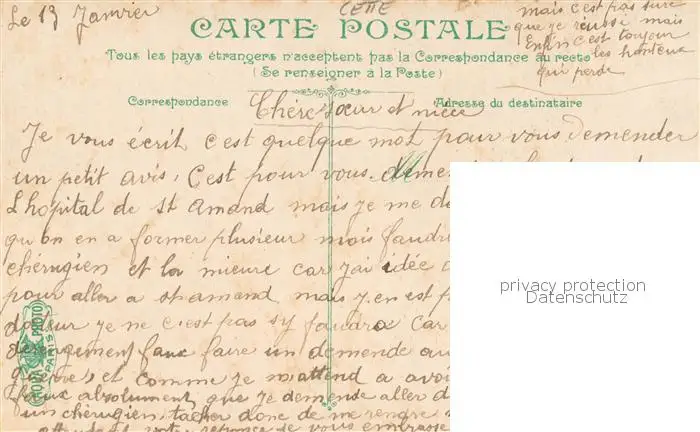 Le 13 Janvier
CETTE
mais c'est pas sure
que je réussi mais
Enfin c'est toujour
les honteux
qui perde
CARTE POSTALE
Tous les pays étrangers n'acceptent pas la Correspondance au recto
(Se renseigner à la Poste)
Correspondance
Adresse du destinataire
Chère Sœur et niece
Je vous écrit c'est quelque mot pour vous demender
un petit avis. C'est pour vous
L'hopital de St Amand mais je me de
qu'on en a former plusieur mois faudr
chérugien et la mieure car j'ai idée
pour aller a st amand mais j'en est p
docteur je ne c'est pas s'y faudra car
derengement faux faire un demende au
et comme je m'attend a avoi
faux absolument que je demende aller d
un chérugien, tacher donc de me rendre
attendant votre reponse je vous embrasse
NOVA PHOTO
PARIS
privacy protection
Datenschutz